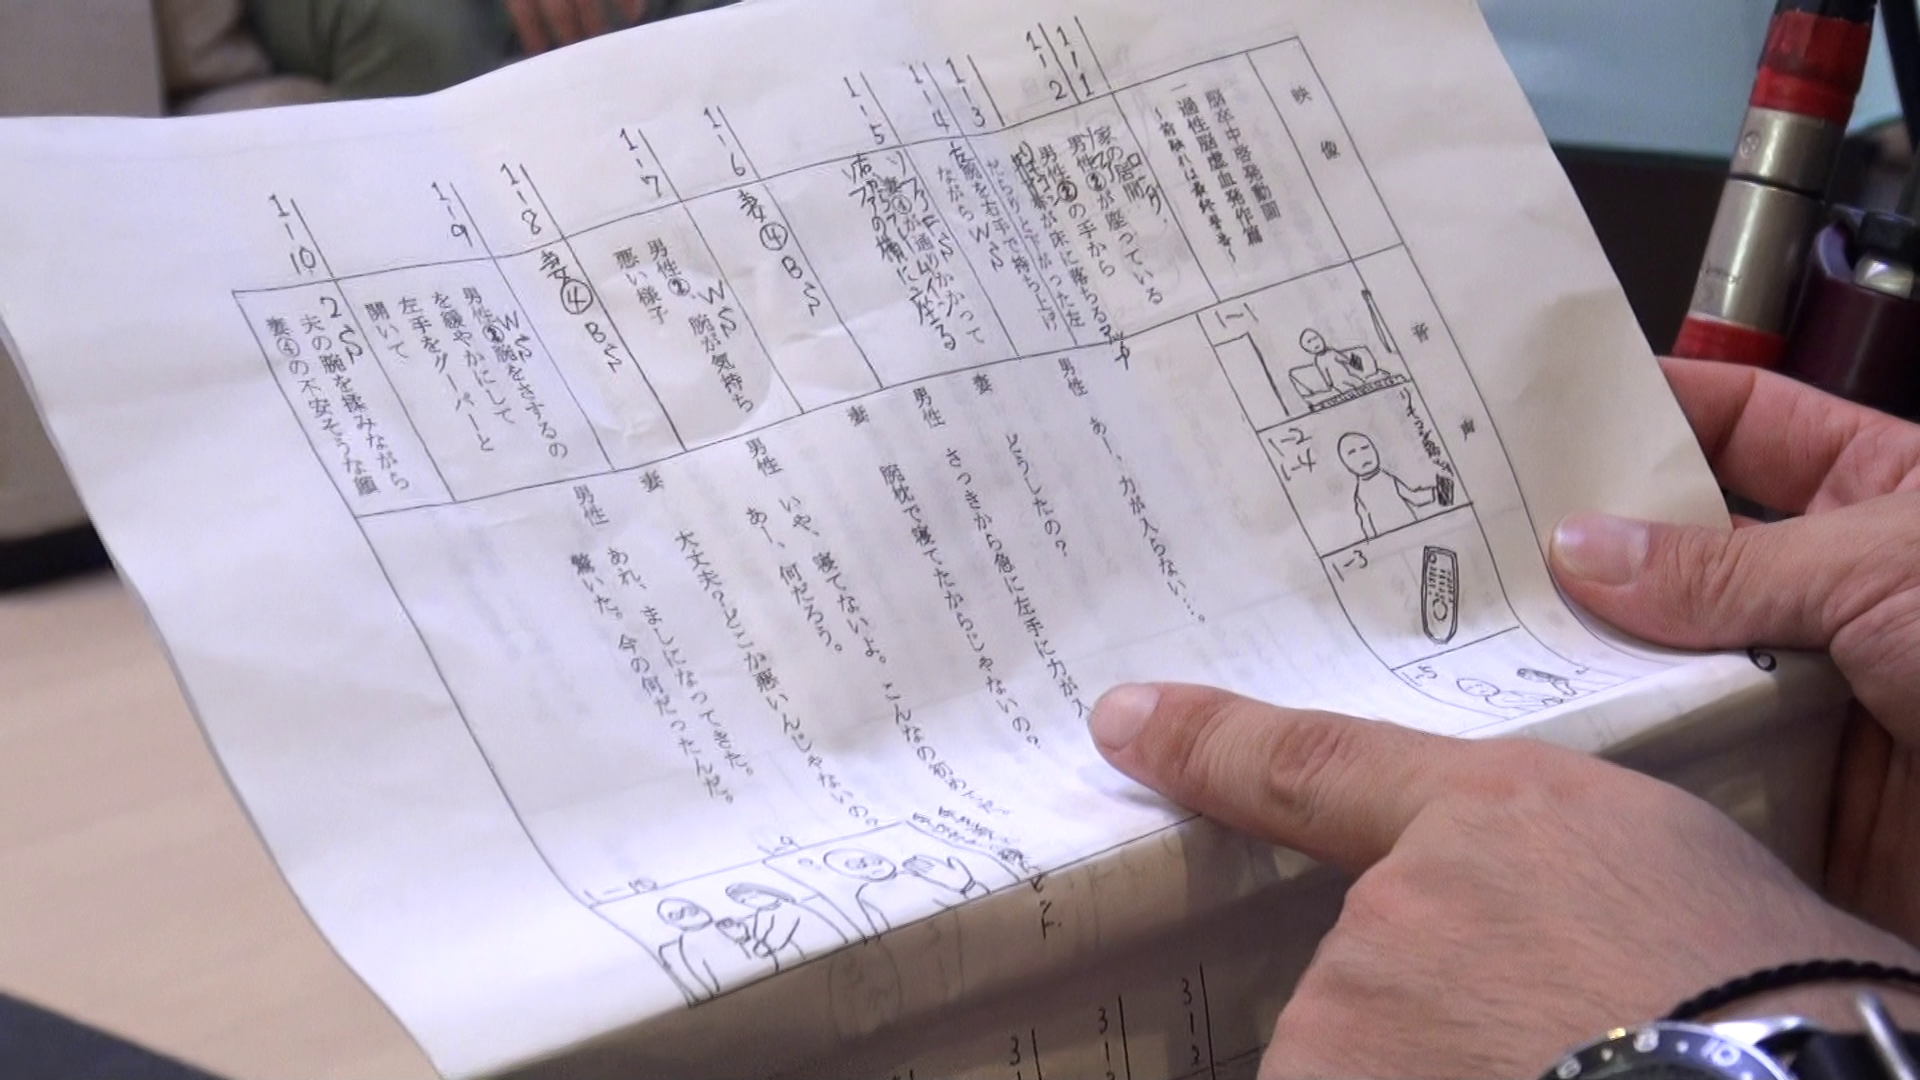 映像
音声
脳卒中啓発動画
一過性脳虚血発作篇
～前触れは最終警告～
1-1
家の居間
男性②が座っている
1-2
男性②の手から
リモコンが床に落ちる
1-3
だらりと下がった左
腕を右手で持ち上げ
1-4
ながらWS
1-5
妻④が通りかかって
ソファの横に座る
1-6
妻④BS
1-7
男性②、WS 腕が気持ち
悪い様子
1-8
妻④BS
1-9
WS
男性②腕をさするの
を緩やかにして
左手をグーパーと
開いて
1-10
2S
夫の腕を揉みながら
妻④の不安そうな顔
男性 あー、力が入らない…。
妻 どうしたの？
男性 さっきから急に左手に力が入
妻 腕枕で寝てたからじゃないの？
男性 いや、寝てないよ。こんなの初め
あー、何だろう。
妻 大丈夫？どこか悪いんじゃないの？
男性 あれ、ましになってきた。
驚いた。今の何だったんだ。
1-1
1-2
1-4
リモコン
1-3
1-5
1-9
1-10
6
3
1
2
3
1
3
8
10